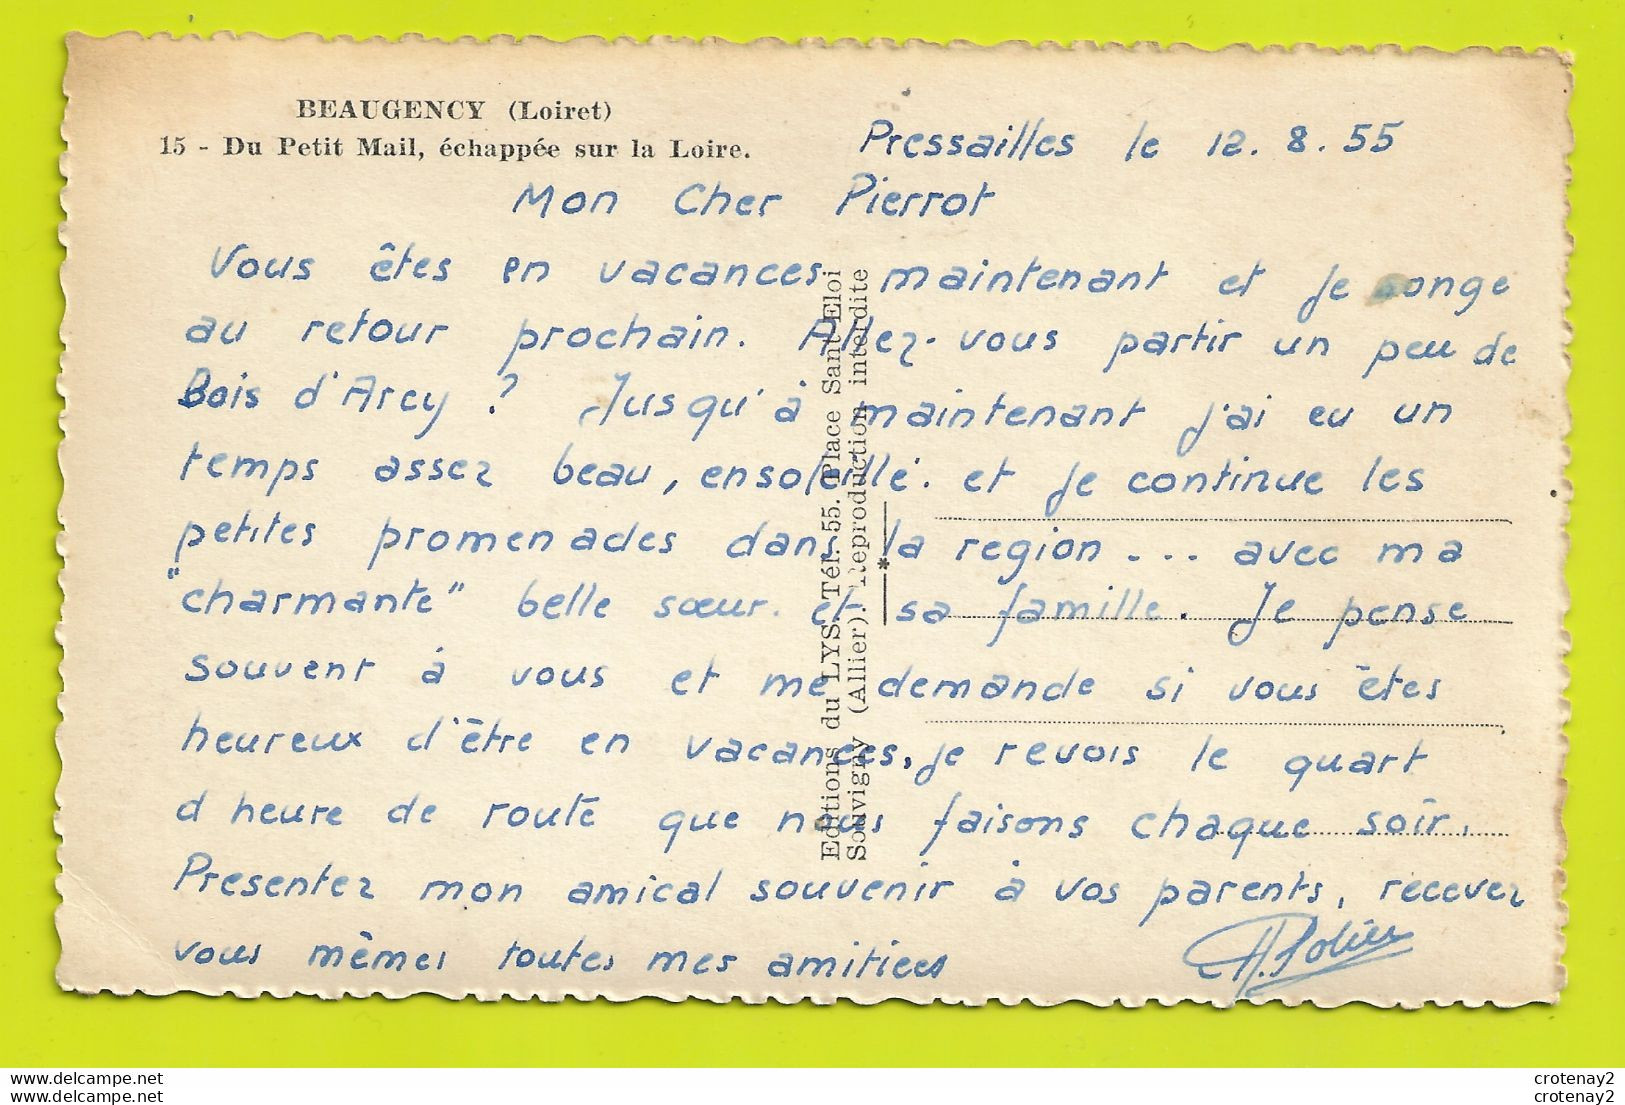 BEAUGENCY (Loiret)
15 - Du Petit Mail, échappée sur la Loire.
Pressailles le 12. 8. 55
Mon Cher Pierrot
Vous êtes en vacances maintenant et je songe
au retour prochain. Allez-vous partir un peu de
Bois d'Arcy ? Jusqu'à maintenant j'ai eu un
temps assez beau, ensoleillé. et je continue les
petites promenades dans la region ... avec ma
"charmante" belle sœur. et sa famille. Je pense
souvent à vous et me demande si vous êtes
heureux d'être en vacances, je revois le quart
d heure de route que nous faisons chaque soir.
Presentez mon amical souvenir à vos parents, recevez
vous mêmes toutes mes amitiees
Editions du LYS. Tél. 55. Place Sant Eloi
Souvigny (Allier). Reproduction interdite
crotenay2
crotenay2
crotenay2
crotenay2